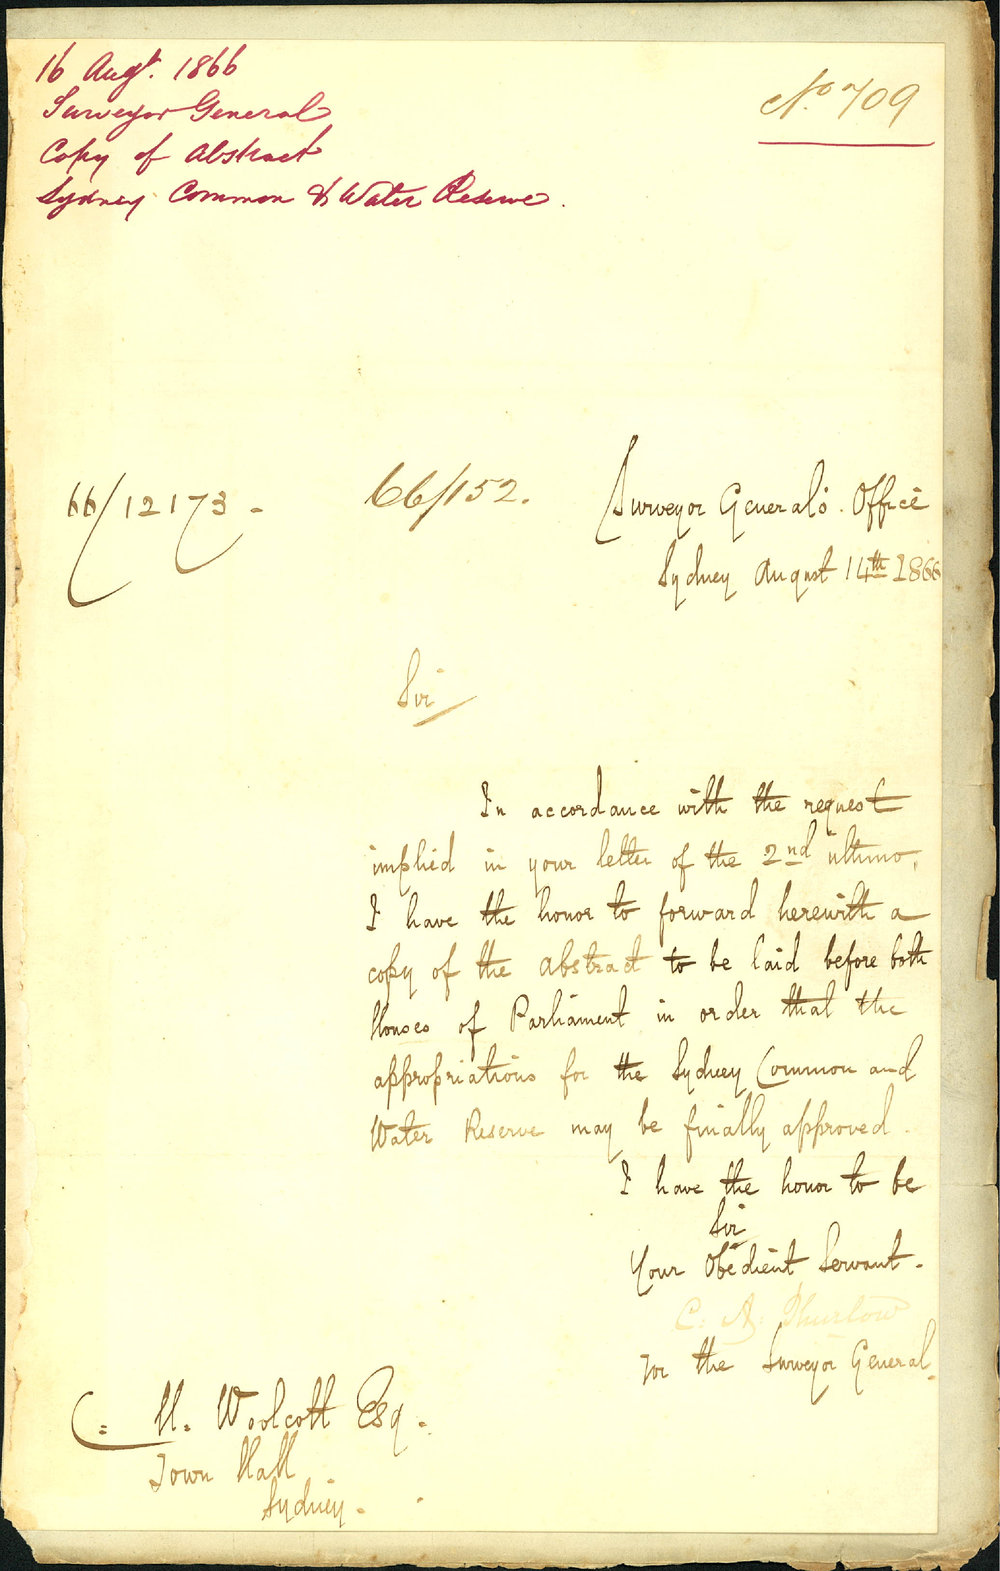 16 Augt. 1866
Surveyor General
Copy of Abstract
Sydney Common & Water Reserve.
No 709
66/12173 -
66/152.
Surveyor General's Office
Sydney August 14th 1866
Sir
In accordance with the request
implied in your letter of the 2nd ultimo,
I have the honor to forward herewith a
copy of the abstract to be laid before both
Houses of Parliament in order that the
appropriations for the Sydney Common and
Water Reserve may be finally approved.
I have the honor to be
Sir
Your Obedient Servant.
C. A. Thurlow
for the Surveyor General.
C: H. Woolcott Esq.
Town Hall
Sydney.